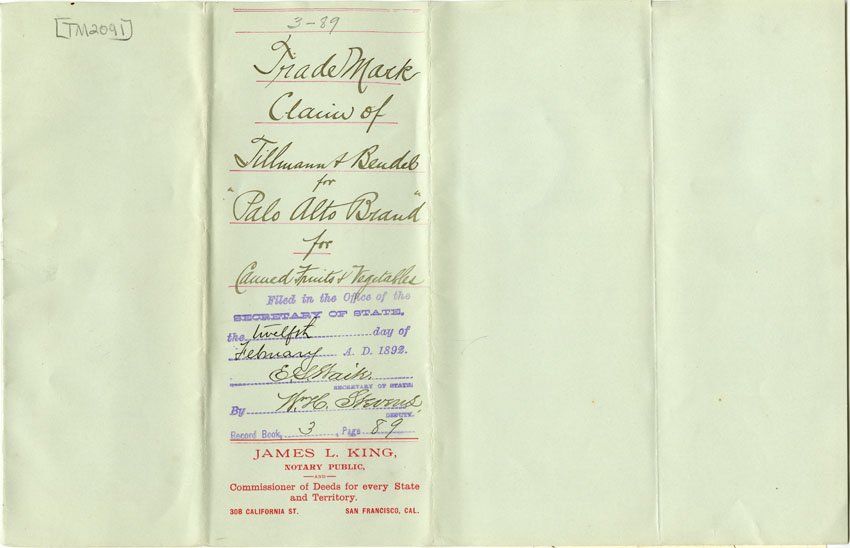 [TM2091]
3-89
Trade Mark
Claim of
Tillmann & Bendel
for
"Palo Alto Brand"
for
Canned Fruits & Vegetables
Filed in the Office of the
SECRETARY OF STATE,
the twelfth day of
February A. D. 1892.
E. G. Waite
SECRETARY OF STATE
By W. H. Stevens
DEPUTY.
Record Book, 3, Page 89
JAMES L. KING,
NOTARY PUBLIC,
—AND—
Commissioner of Deeds for every State
and Territory.
308 CALIFORNIA ST. SAN FRANCISCO, CAL.